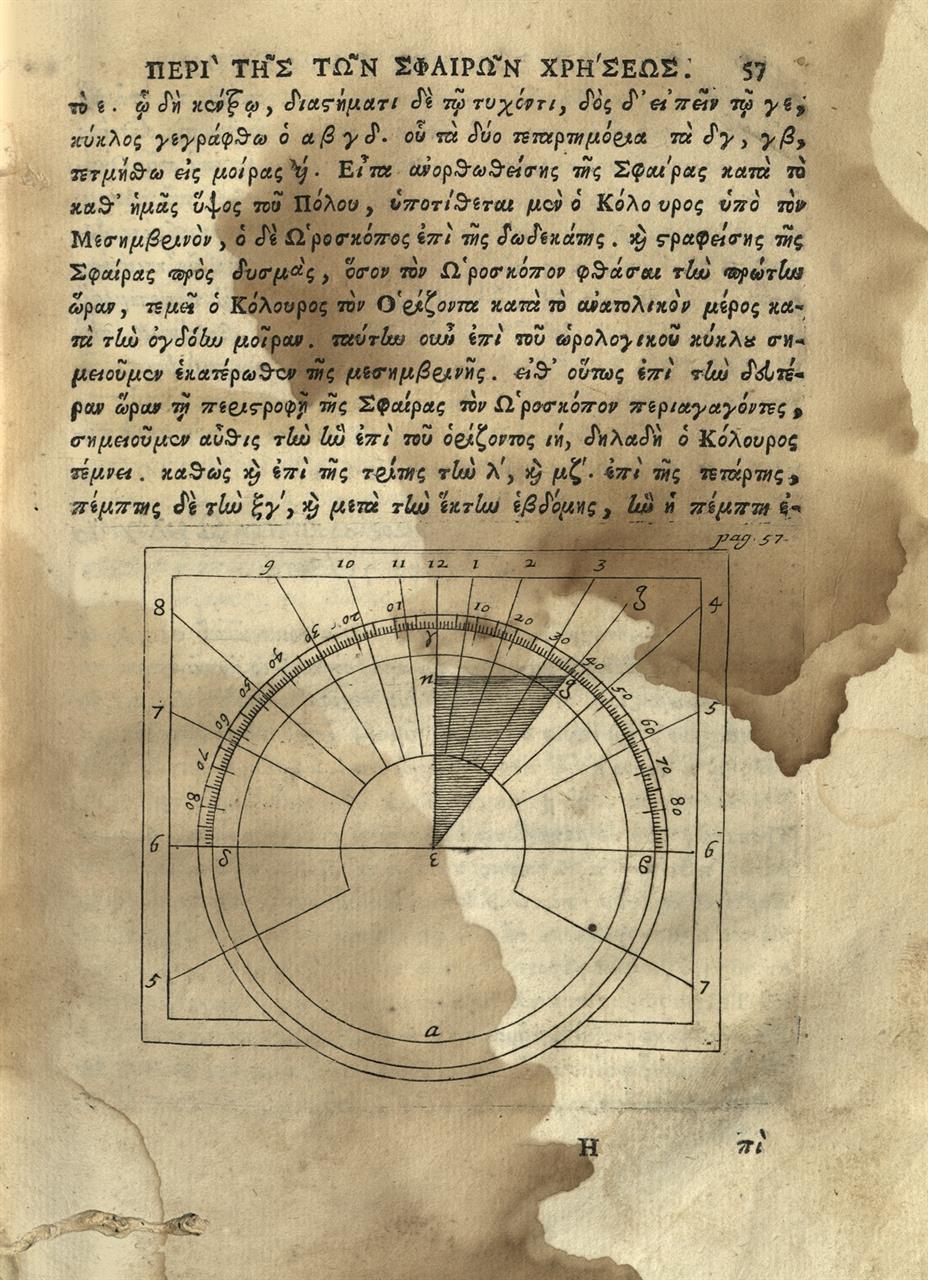 ΠΕΡΙ` ΤΗ͂Σ ΤΩ͂Ν ΣΦΑΙΡΩ͂Ν ΧΡΗ´ΣΕΩΣ. 57
τὸ ε. ᾧ δὴ κέντρῳ, διαστήματι δὲ τῷ τυχόντι, δὸς δ' εἰπεῖν τῷ γε,
κύκλος γεγράφθω ὁ α β γ δ. οὗ τὰ δύο τεταρτημόρια τὰ δγ, γβ,
τετμήσθω εἰς μοίρας ϟ. Εἶτα ἀνορθωθείσης τῆς Σφαίρας κατὰ τὸ
καθ' ἡμᾶς ὕψος τοῦ Πόλου, ὑποτίθεται μὲν ὁ Κόλουρος ὑπὸ τὸν
Μεσημβρινὸν, ὁ δὲ Ὡροσκόπος ἐπὶ τῆς δωδεκάτης. καὶ στραφείσης τῆς
Σφαίρας πρὸς δυσμὰς, ὅσον τὸν Ὡροσκόπον φθάσαι τὴν πρώτην
ὥραν, τεμεῖ ὁ Κόλουρος τὸν Ὁρίζοντα κατὰ τὸ ἀνατολικὸν μέρος κα-
τὰ τὴν ὀγδόην μοῖραν. ταύτην οὖν ἐπὶ τοῦ ὡρολογικοῦ κύκλου ση-
μειοῦμεν ἑκατέρωθεν τῆς μεσημβρινῆς. εἶθ' οὕτως ἐπὶ τὴν δευτέ-
ραν ὥραν τῇ περιστροφῇ τῆς Σφαίρας τὸν Ὡροσκόπον περιαγαγόντες,
σημειοῦμεν αὖθις τὴν ἣν ἐπὶ τοῦ ὁρίζοντος ιή, δηλαδὴ ὁ Κόλουρος
τέμνει. καθὼς καὶ ἐπὶ τῆς τρίτης τὴν λ', καὶ μζ'. ἐπὶ τῆς τετάρτης,
πέμπτης δὲ τὴν ξγ', καὶ μετὰ τὴν ἕκτην ἑβδόμης, ἣν ἡ πέμπτη ἐ-
pag. 57.
9 10 11 12 1 2 3
8 ϑ 4
40 30 20 10 γ 10 20 30 40
n ϑ
50 50
7 5
60 60
70 70
80 80
6 δ ε β 6
5 7
a
H πὶ